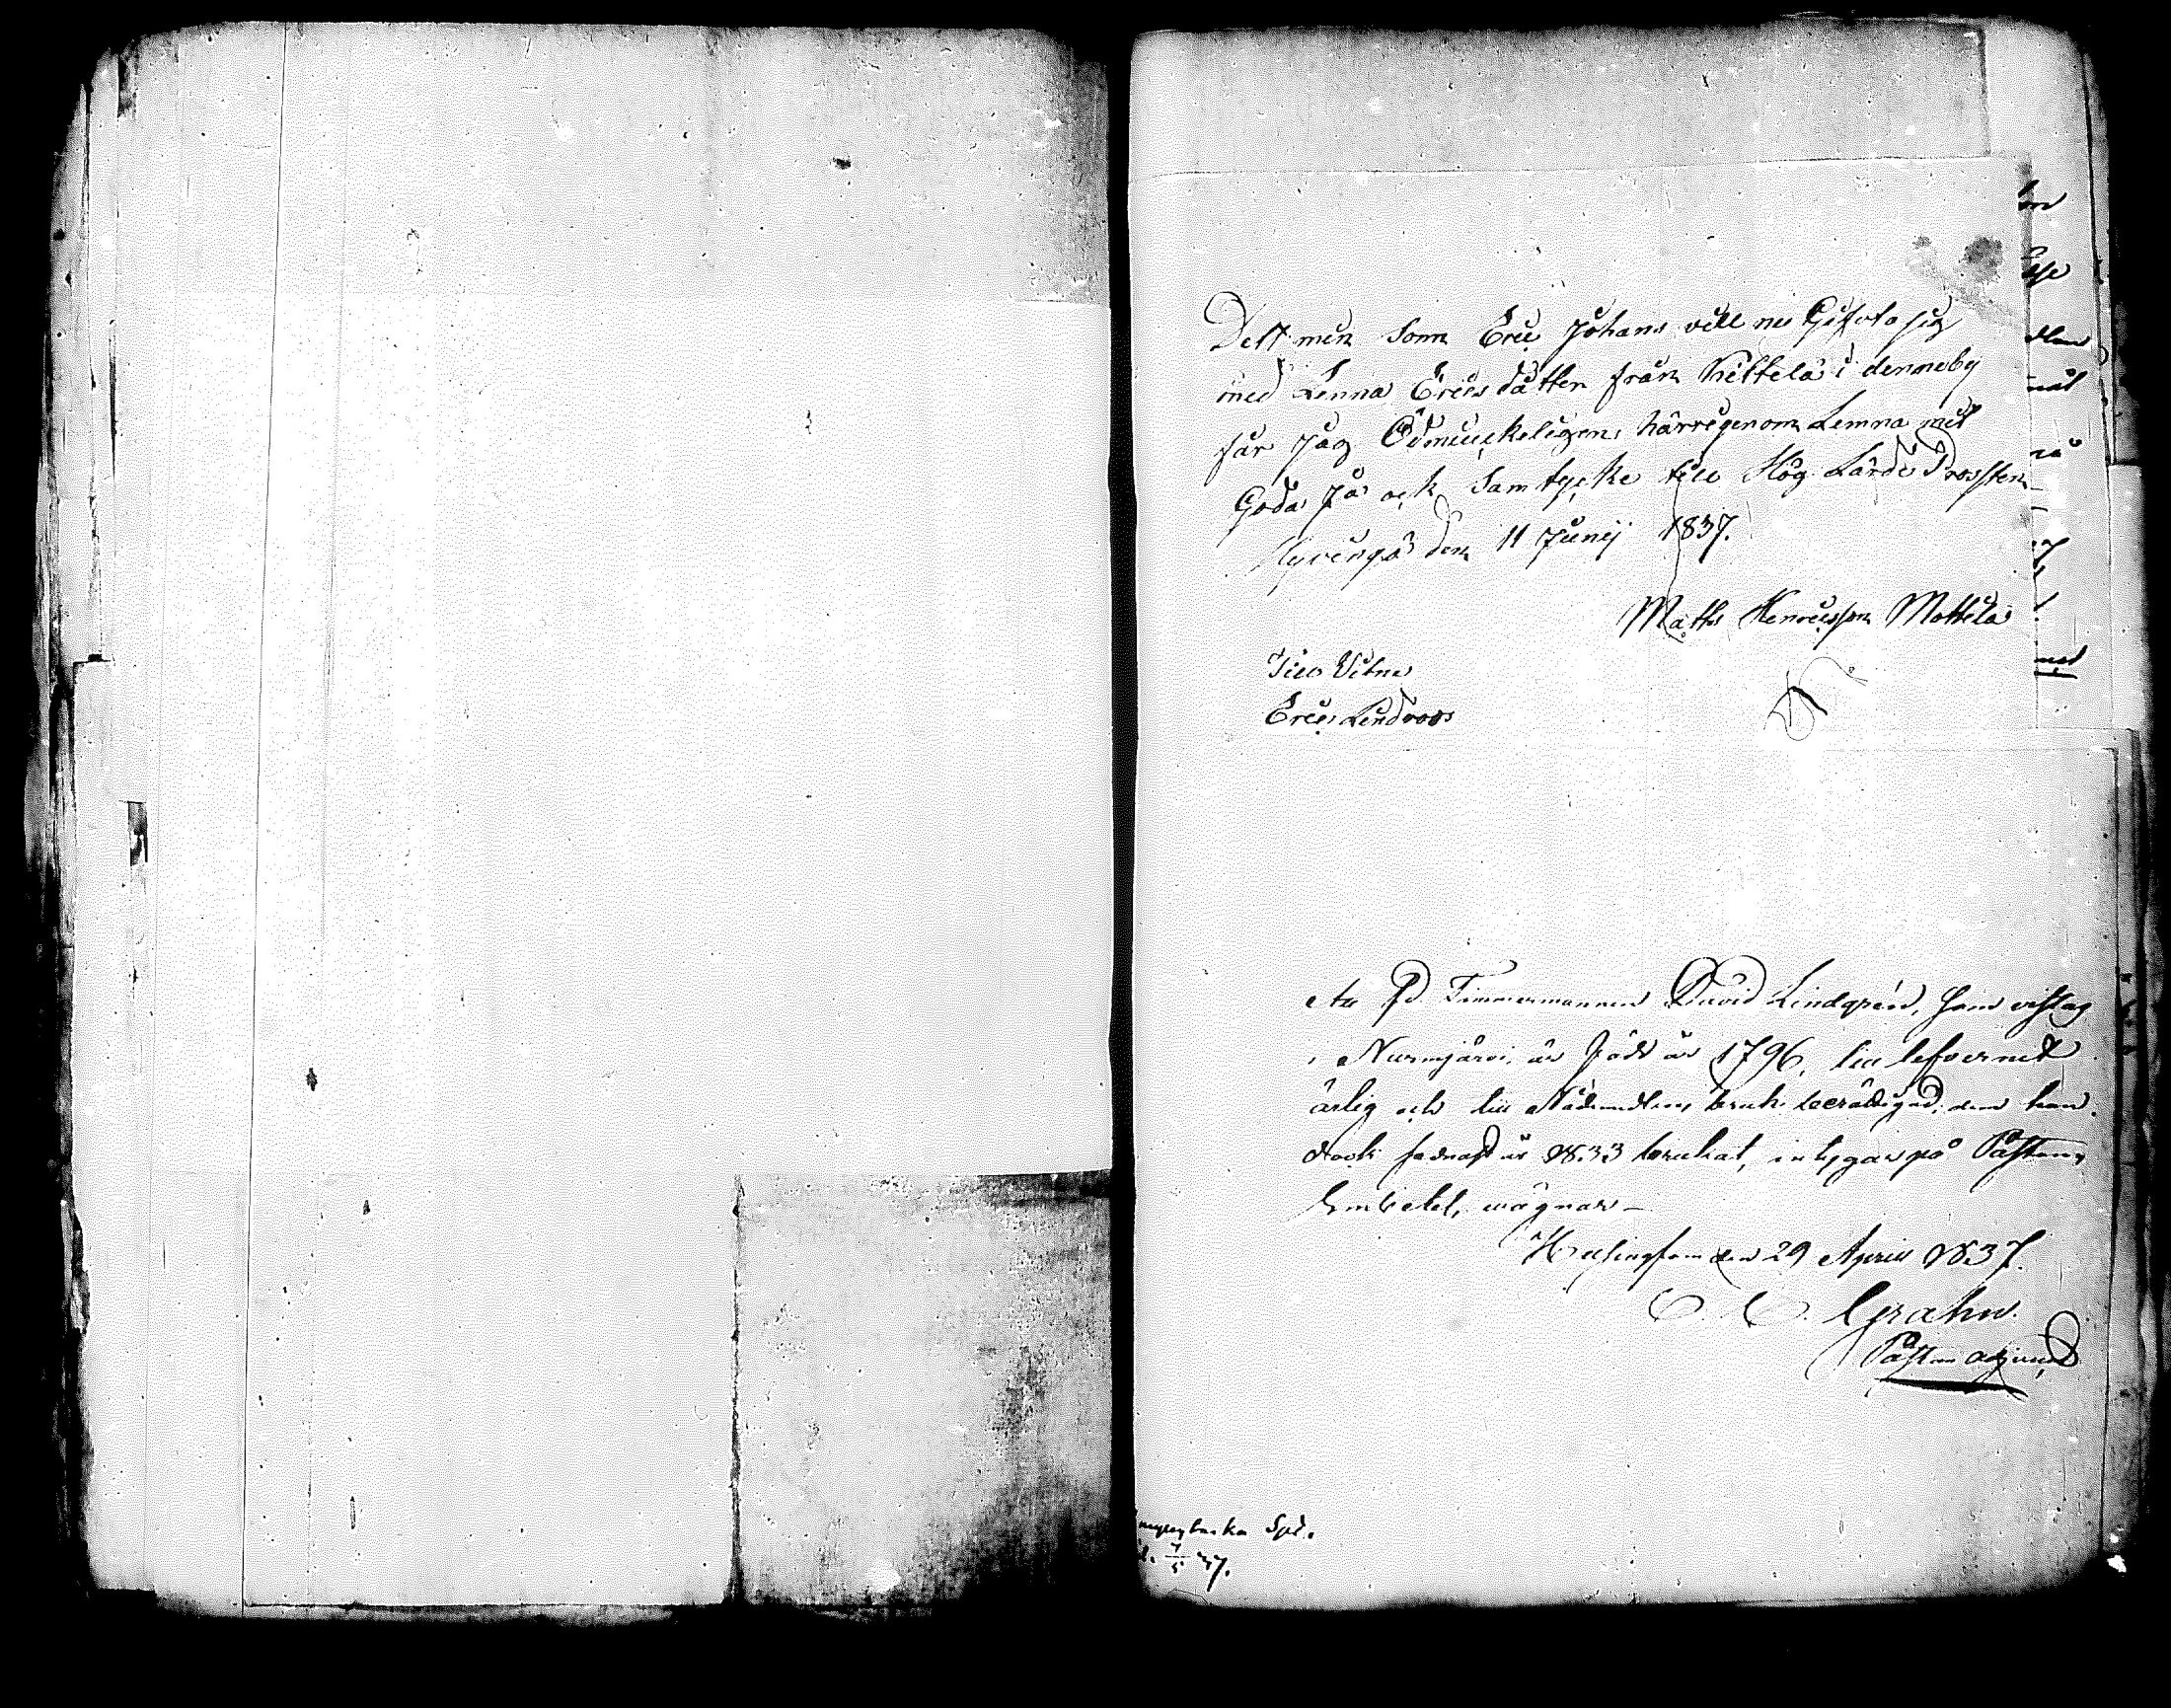 Dett min Sonn Eric Johans vill nu Gifvta sig
med Lenna Erics dåtter från Kittelä i denneby
får Jag Ödmiuckeligen härrigenom Lemna mit
Goda Ja ock Samtycke till Hög Lärde Prossten
Hyvinge den 11 Junij 1837.
Matts Henricsson Mottila
Till Vitne
Eric Lindroos
Att fd. Timmermannen David Lindgrén, som vistas
i Nurmijärvi, är född år 1796, till lefvernet
ärlig och till Nådemedlens bruk berättigad, dem han
dock sednast år 1833 brukat, intygar på Pastors
Embetets wägnar
Helsingfors den 29 April 1837.
Grahn.
Pastors adjunct
Spl.
7/5 37.